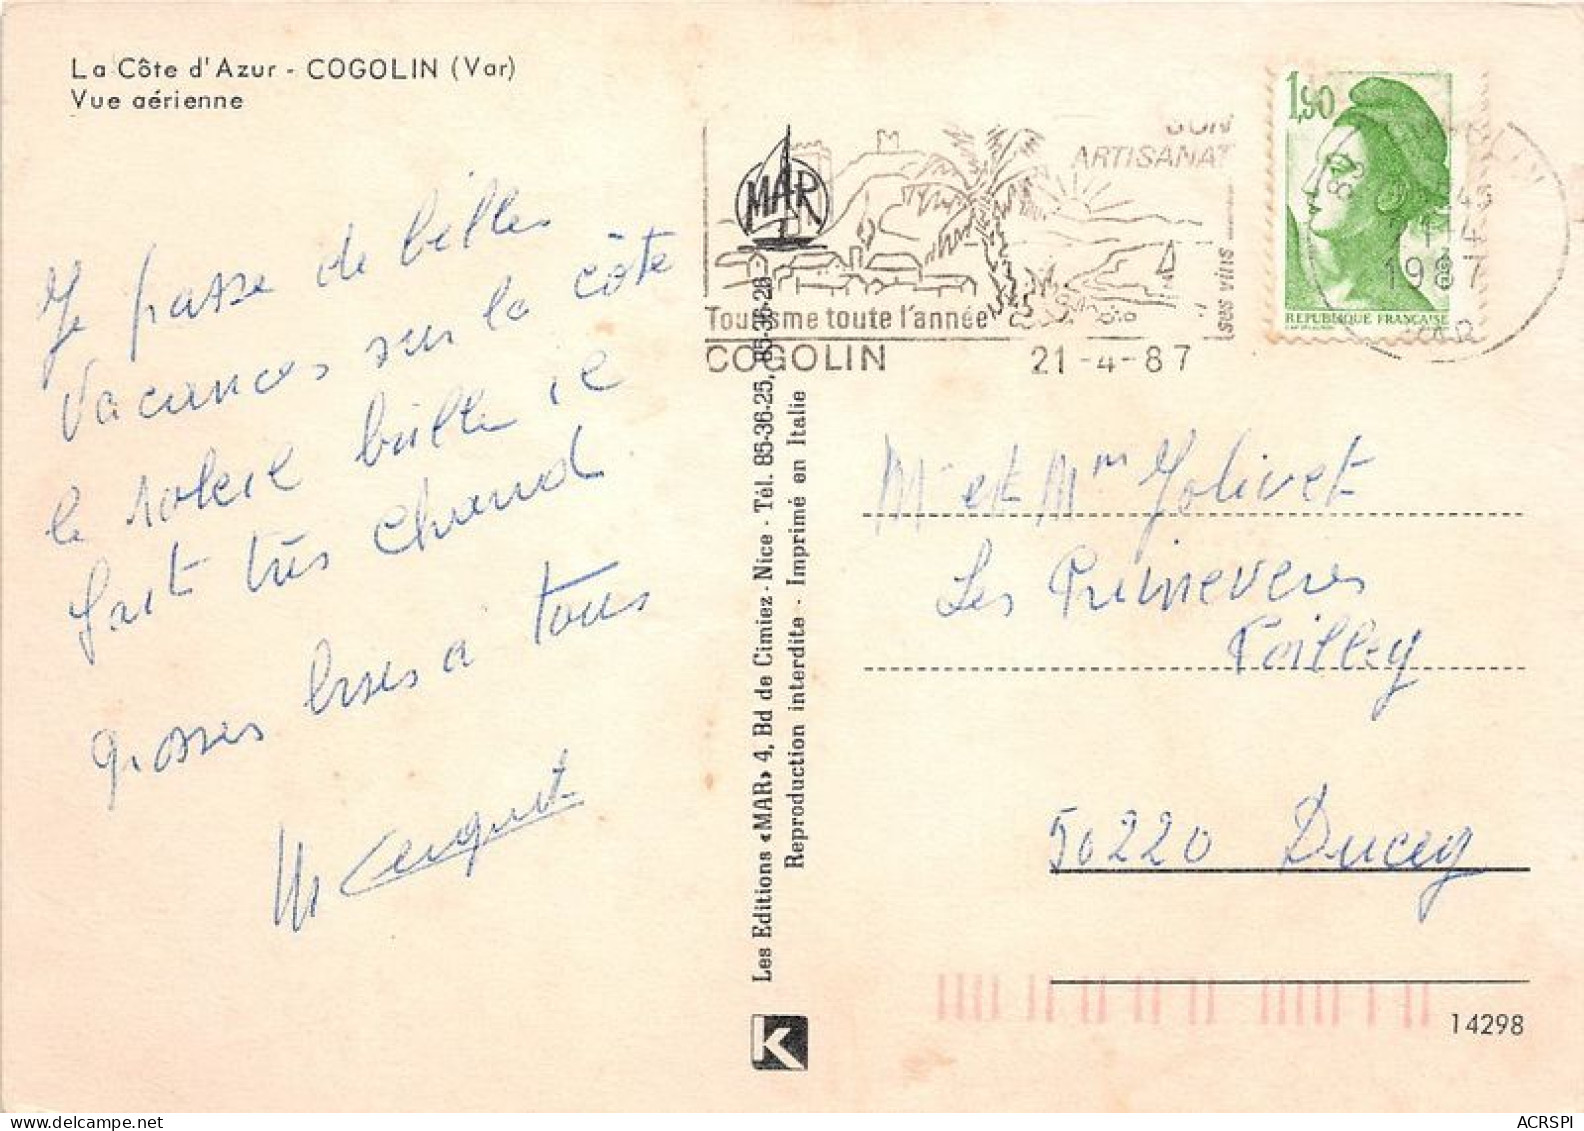 La Côte d'Azur - COGOLIN (Var)
Vue aérienne
Je passe de belles
vacances sur la côte
le soleil brille il
fait très chaud
grosses bises a tous
SON
ARTISANAT
MAR
Tourisme toute l'année
ses vins
COGOLIN 21-4-87
1,90
REPUBLIQUE FRANÇAISE
21-4
1987
VAR
Mr et Mme Jolivet
Les Primeveres
Poilley
50220 Ducey
Les Editions «MAR» 4, Bd de Cimiez - Nice - Tél. 85-36-25, 85-36-26
Reproduction interdite - Imprimé en Italie
K
14298
ACRSPI